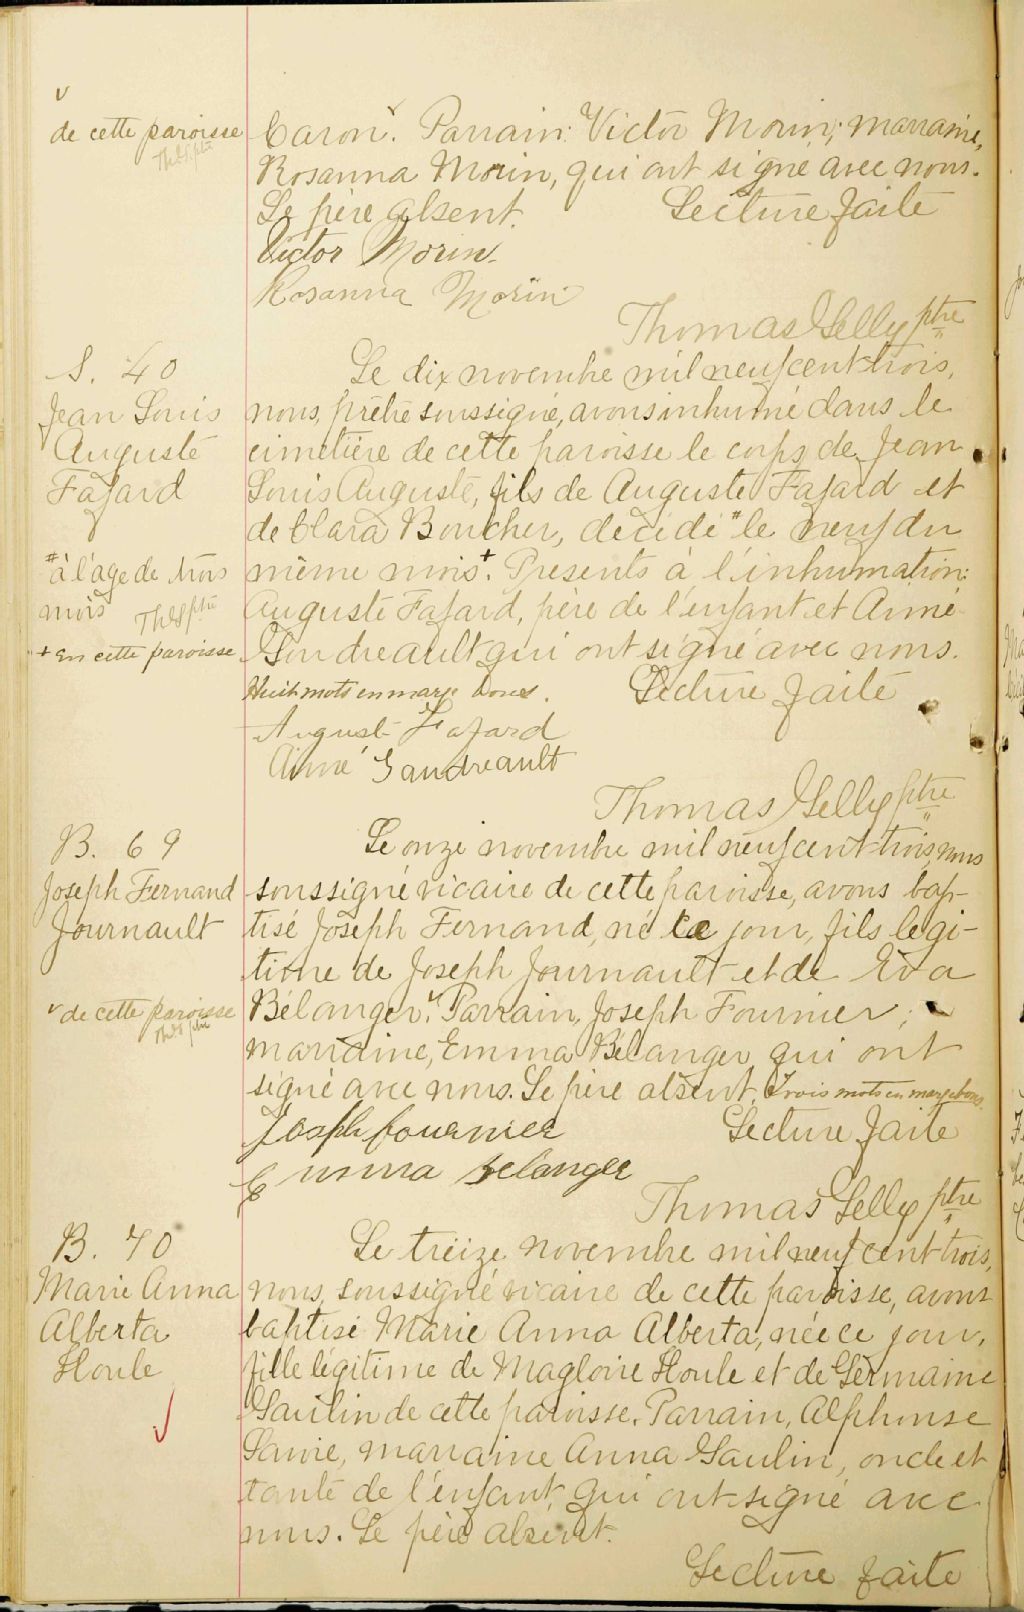 v
de cette paroisse
Caron v. Parrain: Victor Morin; marraine,
Rosanna Morin, qui ont signé avec nous.
Le père absent. Lecture faite
Victor Morin.
Rosanna Morin
Thomas Gelly ptre
S. 40
Jean Louis
Auguste
Fafard
# à l'age de trois
mois Th G ptre
+ en cette paroisse
Le dix novembre mil neuf cent trois,
nous, prêtre soussigné, avons inhumé dans le
cimetière de cette paroisse le corps de Jean
Louis Auguste, fils de Auguste Fafard et
de Clara Boucher, décédé # le neuf du
même mois +. Présents à l'inhumation:
Auguste Fafard, père de l'enfant et Aimé
Goudreault qui ont signé avec nous.
Huit mots en marge bons. Lecture faite
Auguste Fafard
Aimé Gaudreault
Thomas Gelly ptre
B. 69
Joseph Fernand
Journault
v de cette paroisse
Th. G ptre
Le onze novembre mil neuf cent trois, nous
soussigné vicaire de cette paroisse, avons bap-
tisé Joseph Fernand, né ce jour, fils légi-
time de Joseph Journault et de Eva
Bélanger v. Parrain, Joseph Fournier;
marraine, Emma Bélanger qui ont
signé avec nous. Le père absent. Trois mots en marge bons.
Joseph fournier Lecture faite
Emma Belanger
Thomas Gelly ptre
B. 70
Marie Anna
Alberta
Houle
Le treize novembre mil neuf cent trois,
nous, soussigné vicaire de cette paroisse, avons
baptisé Marie Anna Alberta, née ce jour,
fille légitime de Magloire Houle et de Germaine
Gaulin de cette paroisse. Parrain, Alphonse
Savoie, marraine Anna Gaulin, oncle et
tante de l'enfant, qui ont signé avec
nous. Le père absent.
Lecture faite